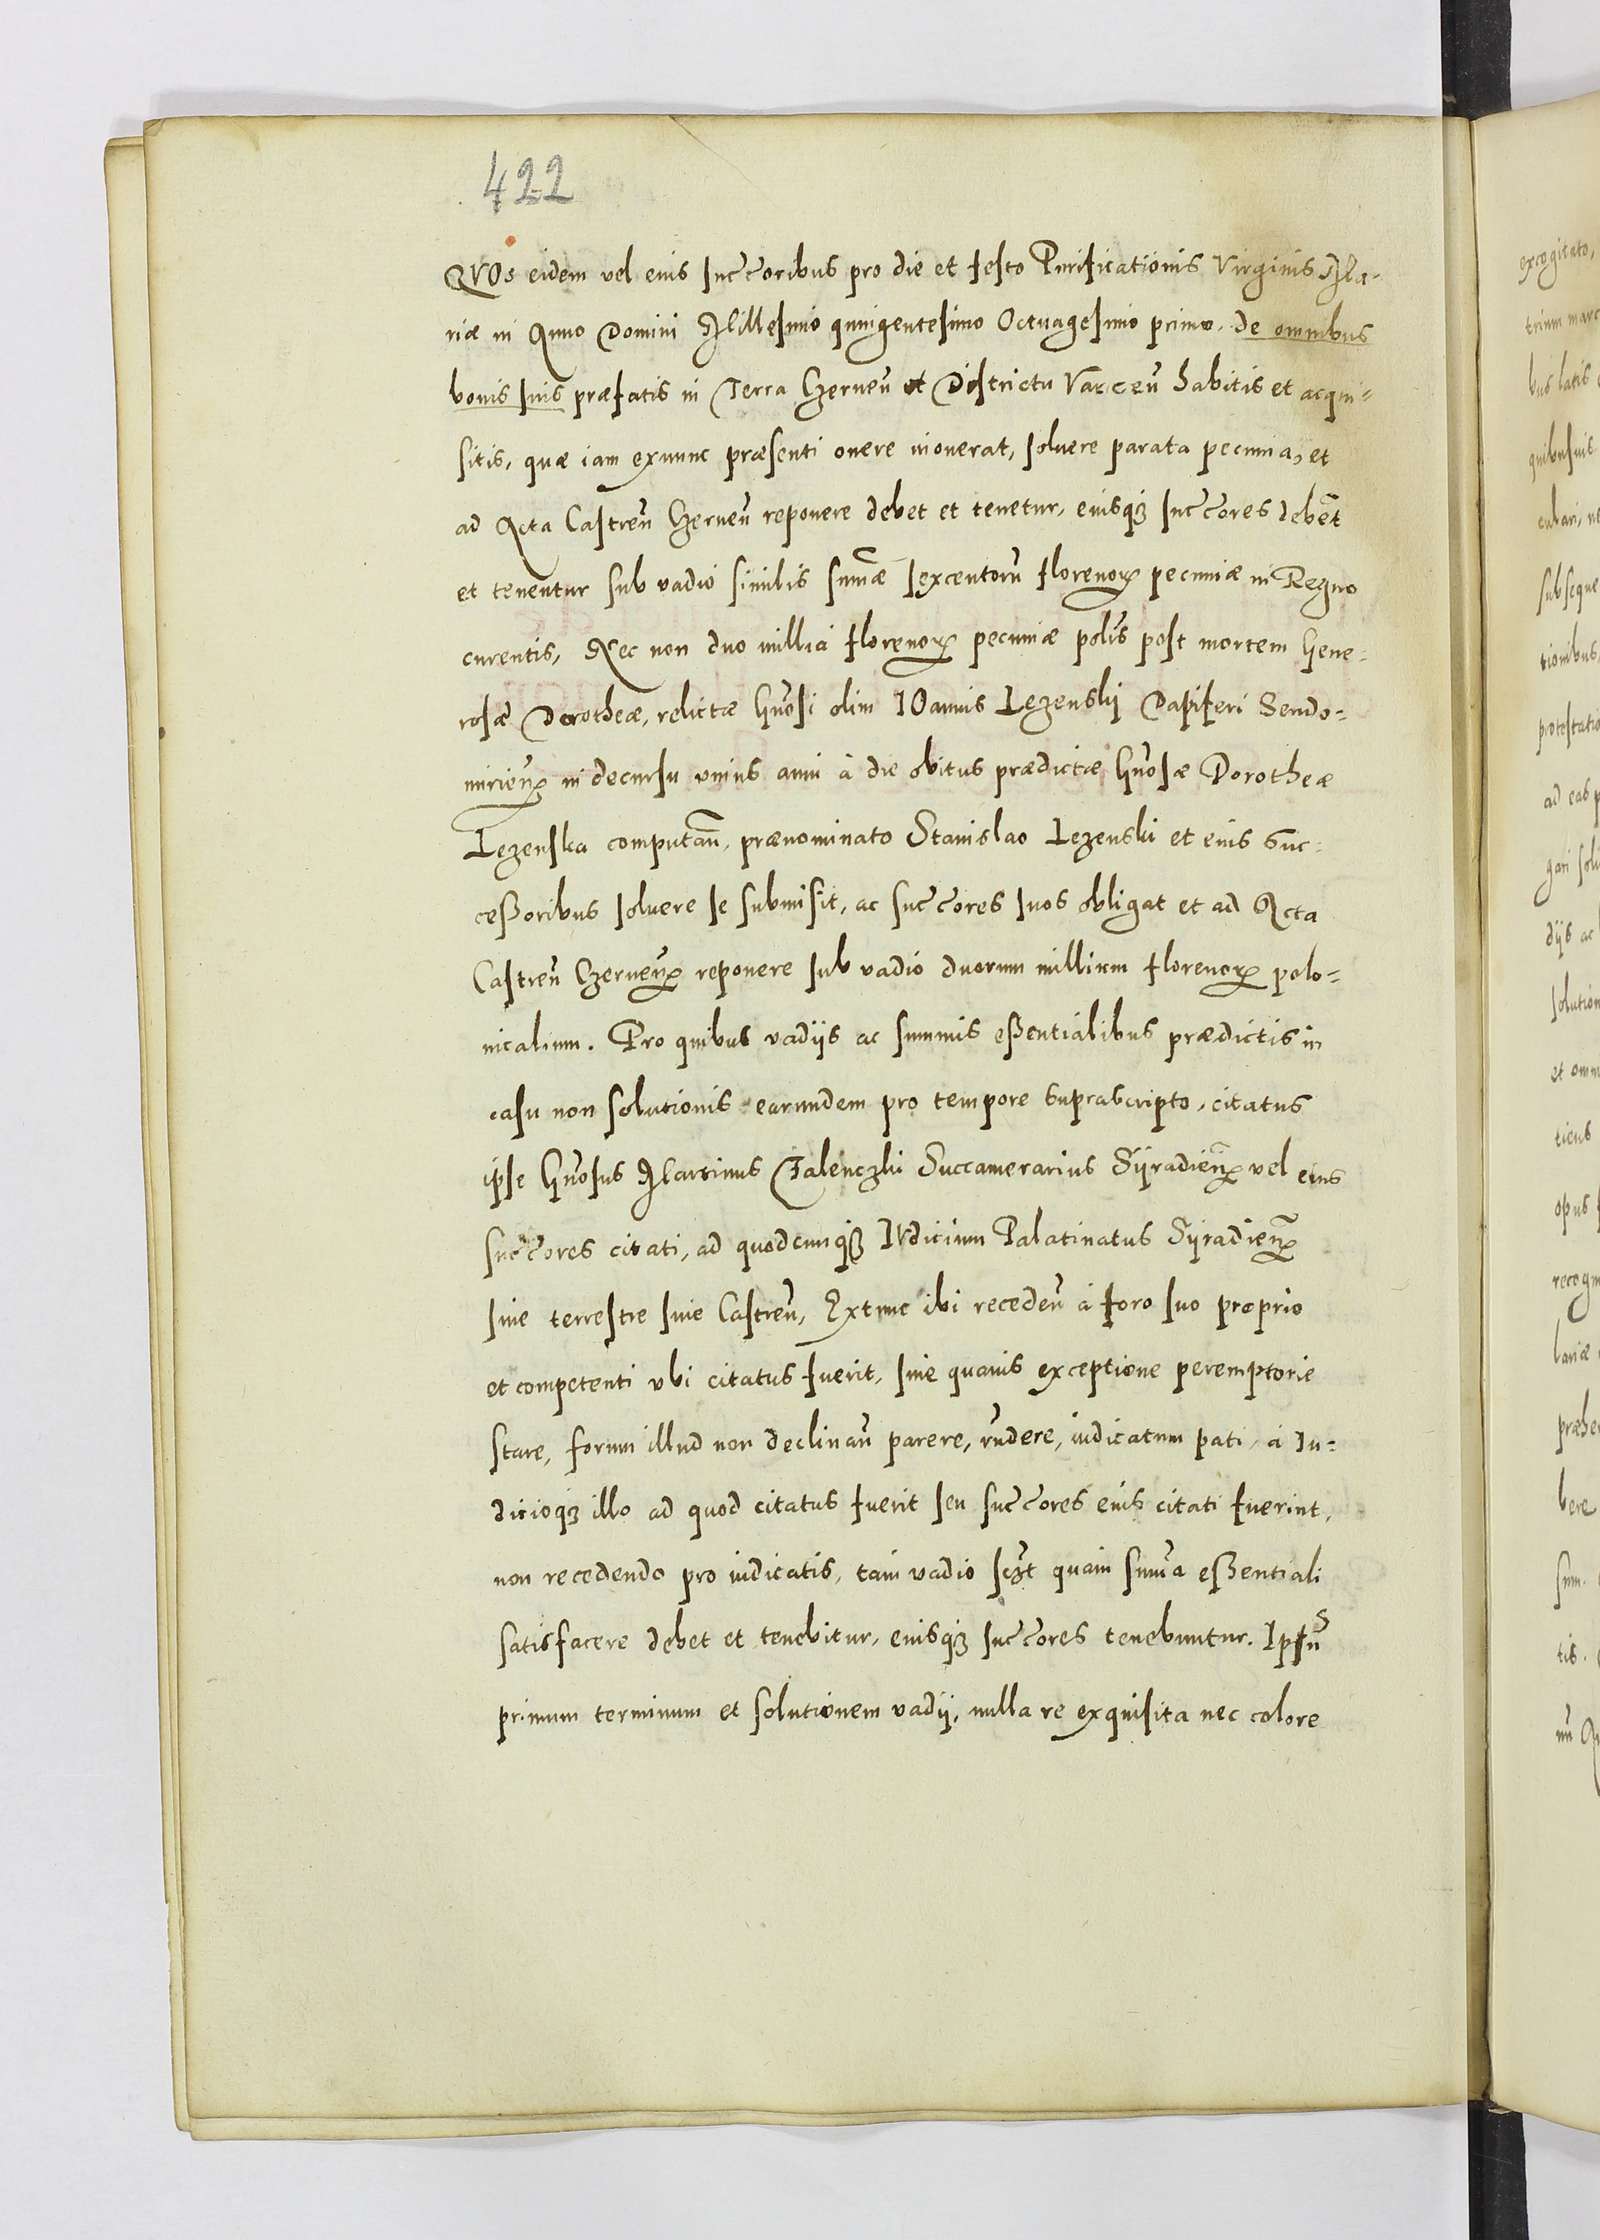 422
QVOs eidem vel eius succ̃oribus pro die et festo Purificationis Virginis Ma-
riæ in Anno Domini Millesimo quingentesimo Octuagesimo primo. de omnibus
bonis suis præfatis in Terra Czerneñ et Districtu Varceñ habitis et acqui-
sitis, quæ iam exnunc præsenti onere inonerat, soluere parata pecunia, et
ad Acta Castreñ Czerneñ reponere debet et tenetur, eiusqꝫ succ̃ores debẽt
et tenentur sub vadio similis sum̃æ sexcentorũ florenoꝝ pecuniæ in Regno
curentis, Nec non duo millia florenoꝝ pecuniæ polı̃s post mortem Gene-
rosæ Dorotheæ, relictæ Gñosi olim IOannis Lezenskj Dapiferi Sendo-
mirieñ in decursu vnius anni à die obitus prædictæ Gñosæ Dorotheæ
Lezenska computañ, prænominato Stanislao Lezenski et eius Suc-
ceßoribus soluere se submisit, ac succ̃ores suos obligat et ad Acta
Castreñ Czerneñ reponere sub vadio duorum millium florenoꝝ polo-
nicalium. Pro quibus vadijs ac summis eßentialibus prædictis in
casu non solutionis earundem pro tempore suprascripto, citatus
ipse Gñosus Martinus Zalenczki Succamerarius Syradieñ vel eius
succ̃ores citati, ad quodcunqꝫ IVdicium Palatinatus Syradieñ
siue terrestre siue Castreñ, Extunc ibi recedeñ à foro suo proprio
et competenti vbi citatus fuerit, sine quauis exceptione peremptorie
stare, forum illud non declinañ parere, rñdere, iudicatum pati, à Iu-
dicioqꝫ illo ad quod citatus fuerit seu succ̃ores eius citati fuerint,
non recedendo pro iudicatis, tam vadio sczt quam sum̃a eßentiali
satisfacere debet et tenebitur, eiusqꝫ succ̃ores tenebuntur. Ipsũ
primum terminum et solutionem vadij, nulla re exquisita nec colore
excogitato,